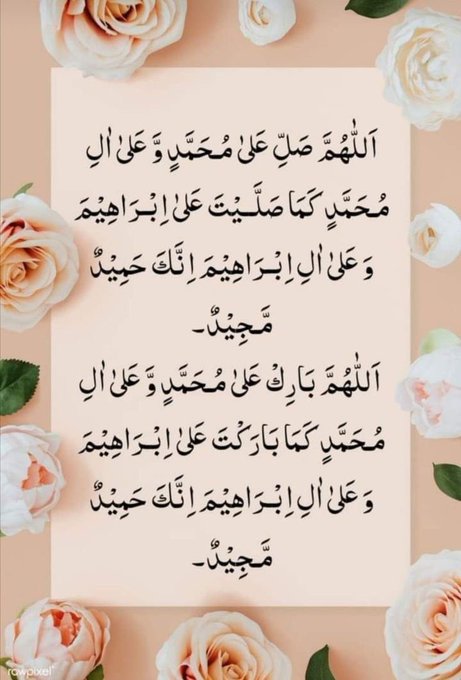 اَللّٰهُمَّ صَلِّ عَلىٰ مُحَمَّدٍ وَّ عَلىٰ اٰلِ
مُحَمَّدٍ كَمَا صَلَّيْتَ عَلىٰ اِبْرَاهِيْمَ
وَ عَلىٰ اٰلِ اِبْرَاهِيْمَ اِنَّكَ حَمِيْدٌ
مَّجِيْدٌ۔
اَللّٰهُمَّ بَارِكْ عَلىٰ مُحَمَّدٍ وَّ عَلىٰ اٰلِ
مُحَمَّدٍ كَمَا بَارَكْتَ عَلىٰ اِبْرَاهِيْمَ
وَ عَلىٰ اٰلِ اِبْرَاهِيْمَ اِنَّكَ حَمِيْدٌ
مَّجِيْدٌ۔
rawpixel